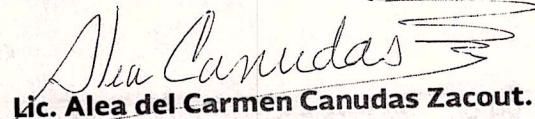 Alea Canudas
Lic. Alea del Carmen Canudas Zacout.